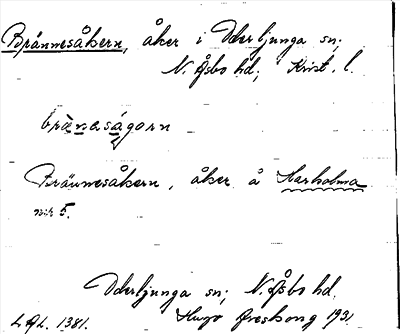 Brännesåkern, åker i Oderljunga sn;
N. Åsbo hd; Krist. l.
bränasågorn
Brännesåkern, åker å Harholma
nir 5.
Oderljunga sn; N. Åsbo hd.
L.A.L. 1381. Hugo Areskoug 1931